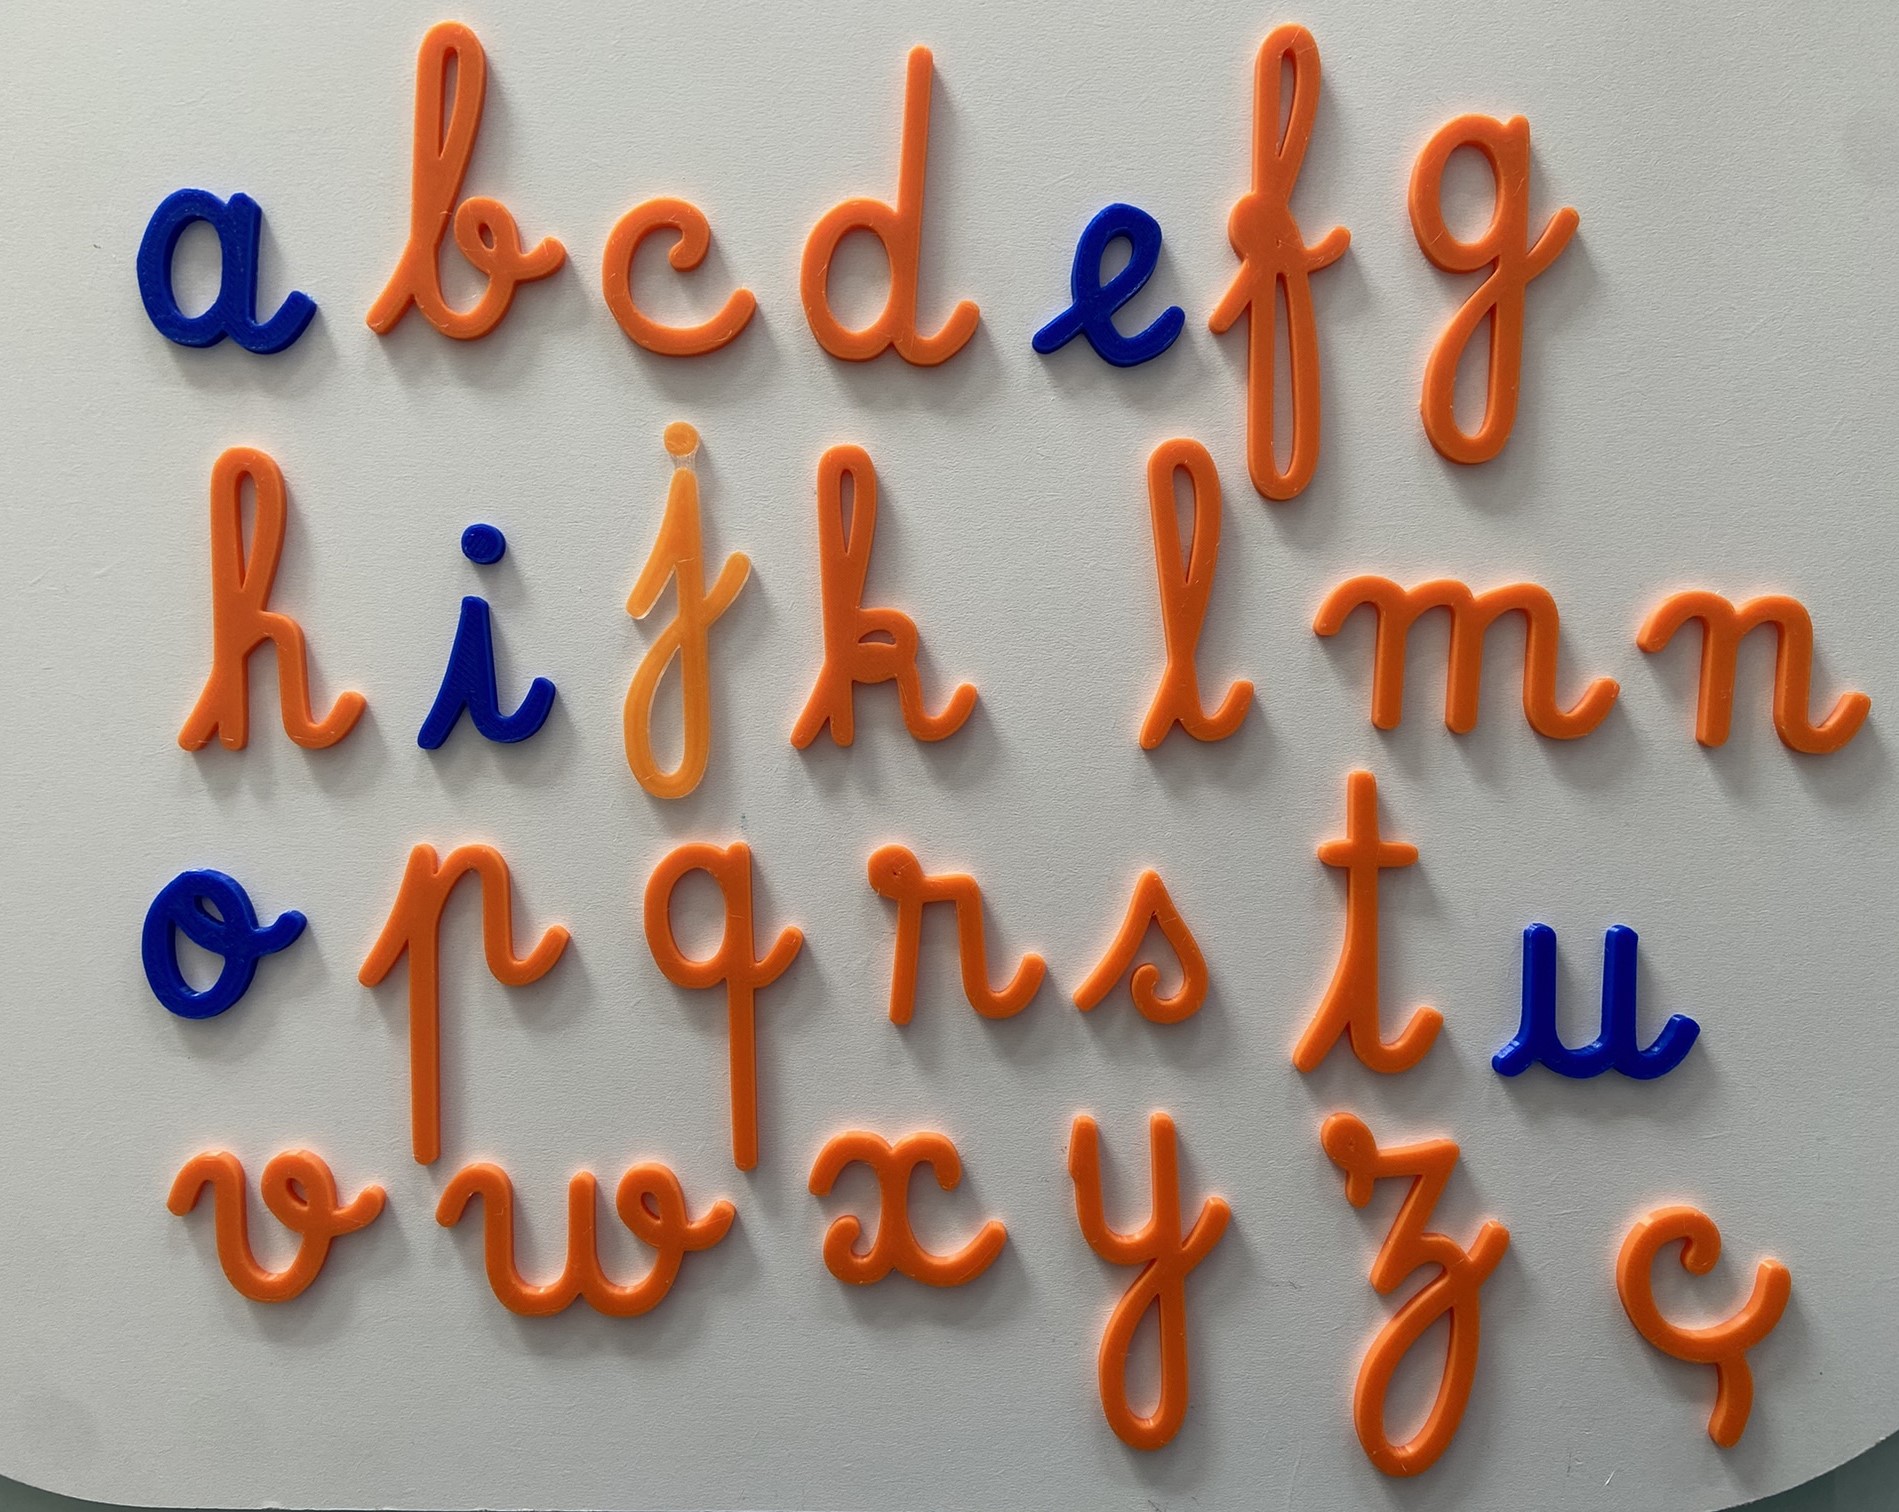 a b c d e f g
h i j k l m n
o p q r s t u
v w x y z ç